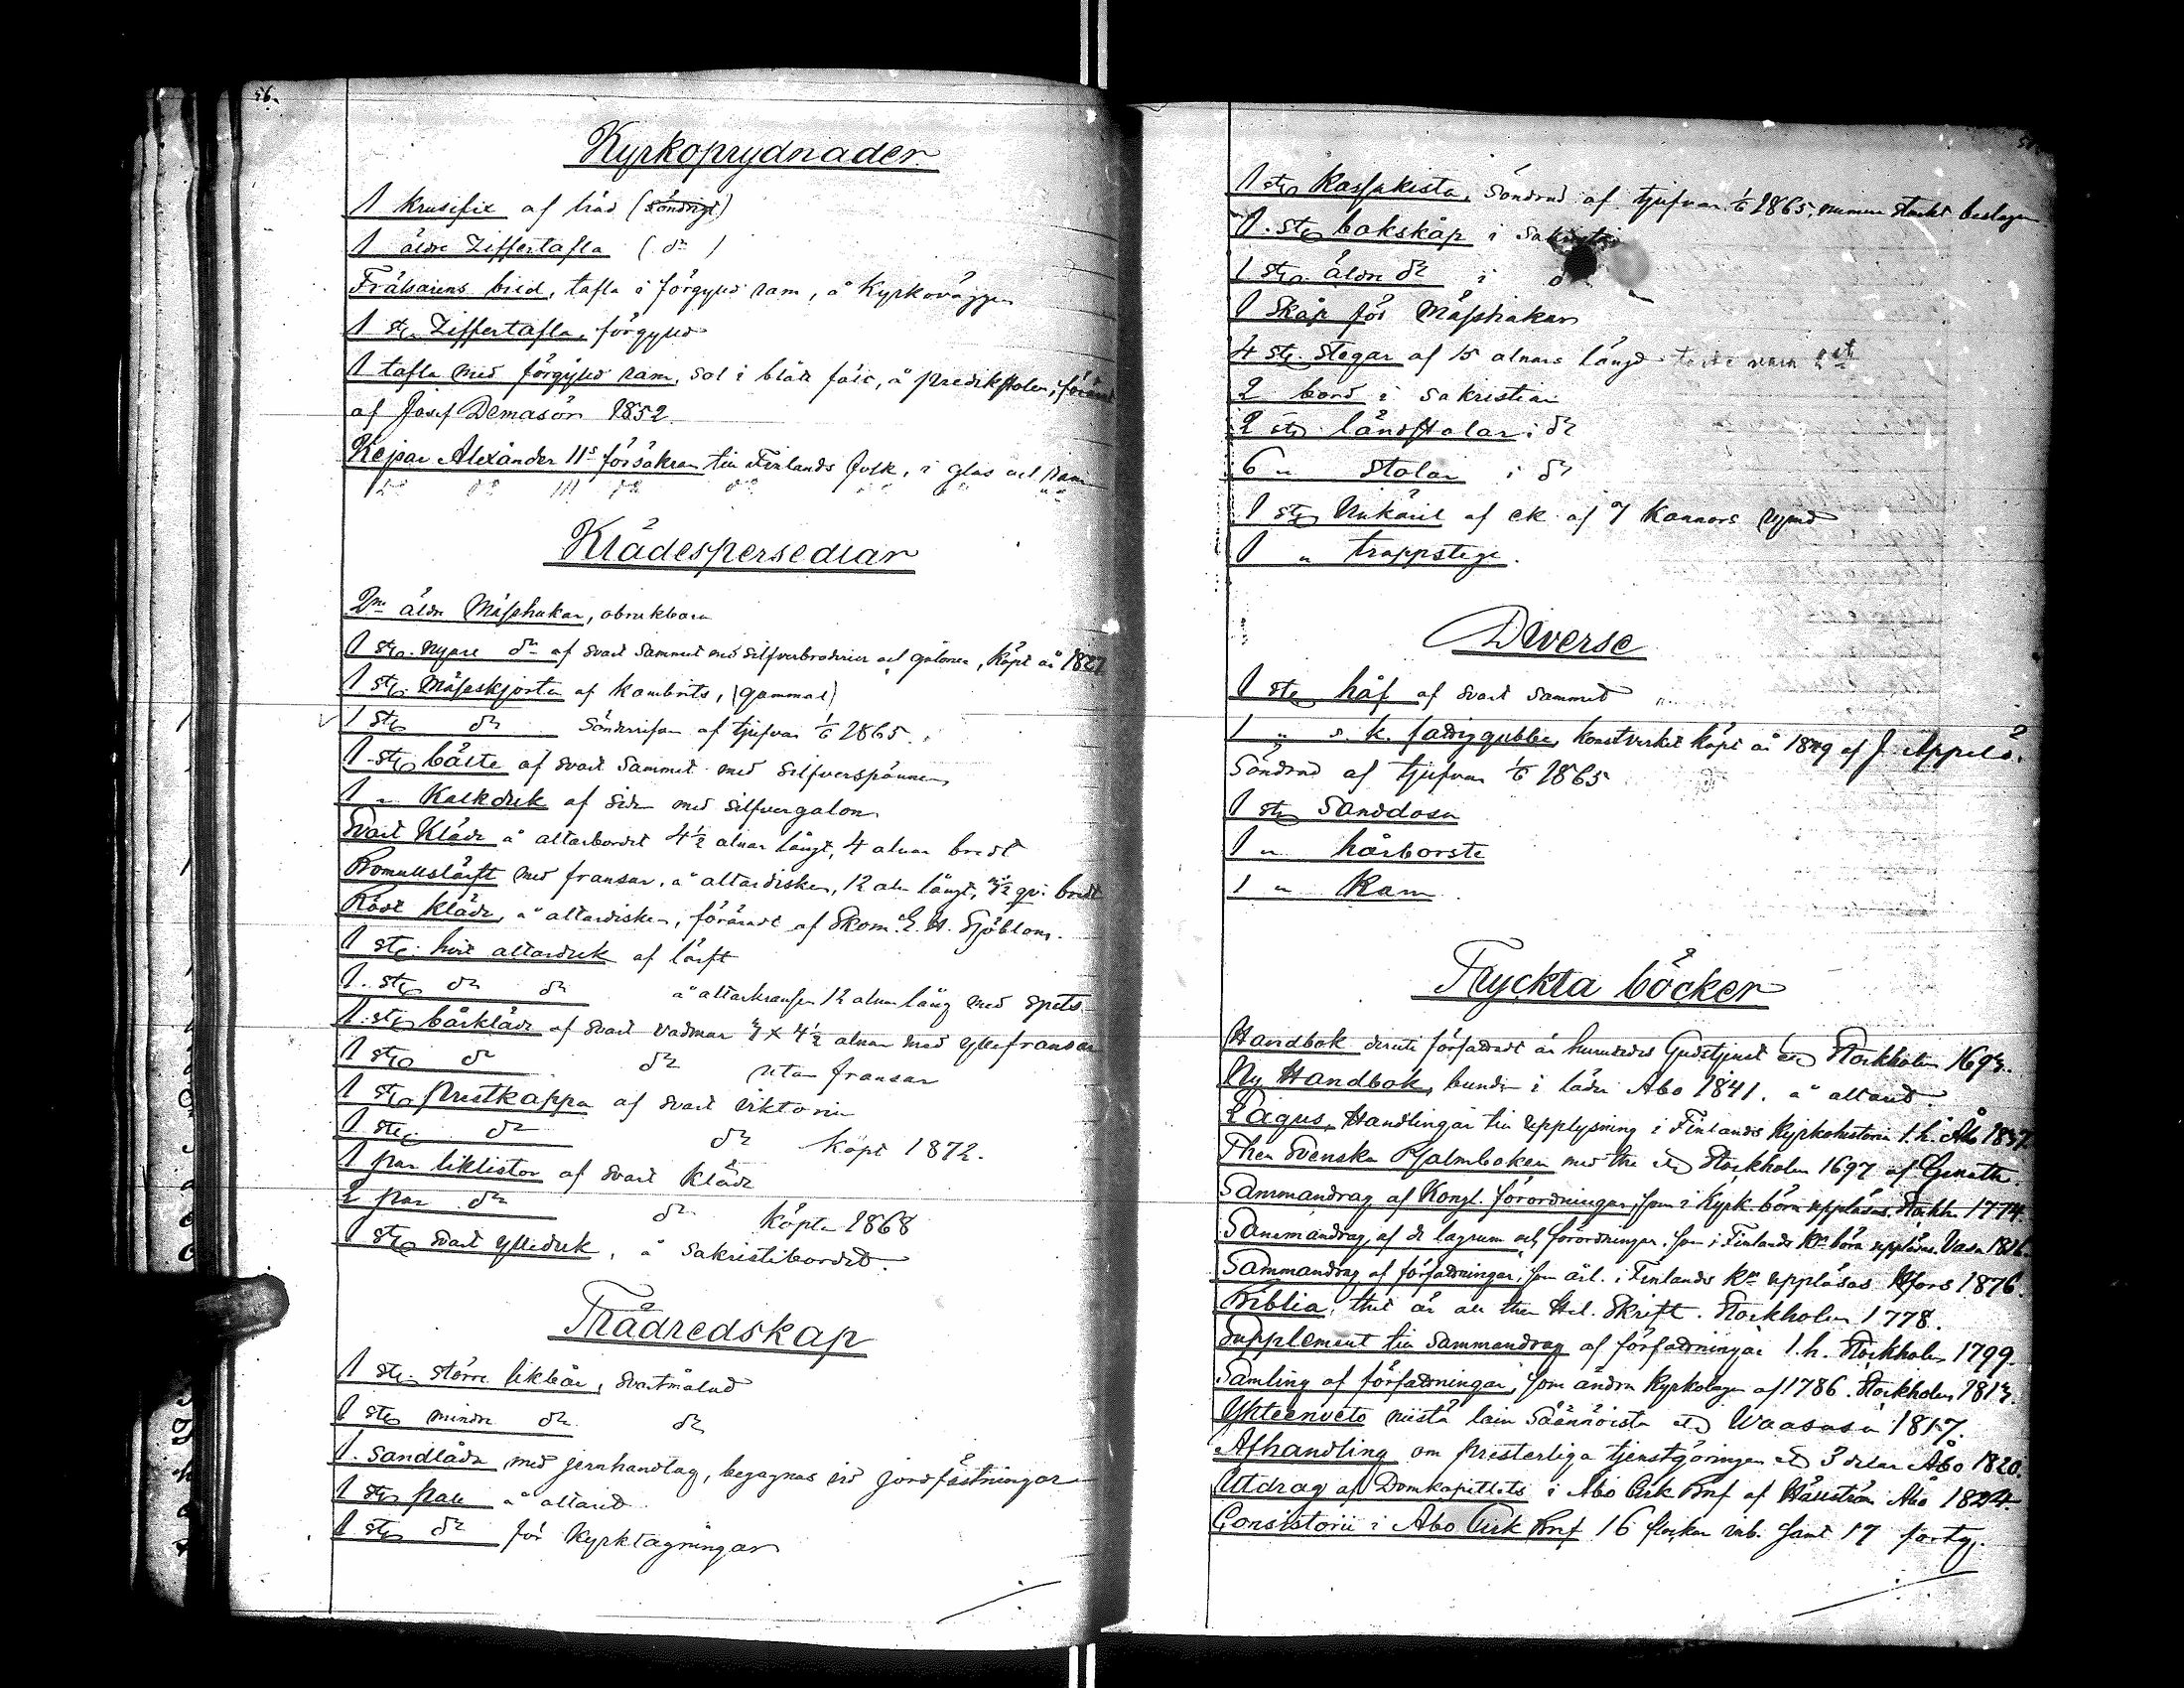 56.
Kyrkoprydnader
1 krusifix af träd (söndrigt)
1 äldre Ziffertafla (do)
Frälsarens bild, tafla i förgylld ram, å Kyrkoväggen
1 st. Ziffertafla, förgylld
1 tafla med förgylld ram, sol i blått fält, å predikstolen, förärad
af Josef Demasör 1852
Kejsar Alexander IIs försäkran till Finlands folk, i glas och ram
do do III do do
Klädespersedlar
2ne äldre Mässhakar, obrukbara
1 st. nyare do af svart sammet med silfverbroderier och galoner, köpt år 1827
1 st. Mässskjorta af kambrits, (gammal)
1 st. do Sönderrifven af tjufvar 1/6 1865.
1 st. bälte af svart sammet med silfverspänne
1 „ Kalkduk af siden med silfvergalon
Svart Kläde å altarbordet 4½ alnar långt, 4 alnar bredt
Bomullslärft med fransar, å altardisken, 12 aln långt, qv. bredt
Rödt kläde, å altardisken, föräradt af Skom. E. H. Sjöblom.
1 st. hvit altarduk af lärft
1 st. do do å altarkransen 12 alnar lång med spets
1 st. bårkläde af svart vadmar 7 x 4½ alnar med yllefransar
1 st. do do utan fransar
1 st. prestkappa af svart viktoria
1 st. do do köpt 1872.
1 par liklistor af svart kläde
2 par do do köpta 1868
1 st. svart ylleduk, å Sakristibordet.
Trädredskap
1 st. större likbår, svartmålad
1 st. mindre do do
1. Sandlåda med jernhandtag, begagnas vid jordfästningar
1 st. pall å altaret
1 st. do för Kyrktagningar
1 st. Kassakista, söndrad af tjufvar 1/6 1865, numera starkt beslagen
1. st. bokskåp i Sakristian
1 st. äldre do i do
1 Skåp för Mässhakar
4 st. Stegar af 15 alnars längd
2 bord i Sakristian
2 st. länstolar i do
6 „ stolar i do
1 st. Vinkäril af ek af 7 kannors rymd
1 „ trappstege.
Diverse
1 st. håf af svart sammet
1 „ s. k. fattiggubbe, konstverket köpt år 1829 af J. Appelö.
Söndrad af tjufvar 1/6 1865
1 st. Sanddosa
1 „ hårborste
1 „ Kam
Tryckta böcker
Handbok deruti författadt är huruledes Gudstjenst etc Stockholm 1693.
Ny Handbok, bunden i läder Åbo 1841. å altaret.
Lagus, Handlingar till upplysning i Finlands Kyrkohistoria 1.h. Åbo 1837.
Then Svenska Psalmboken med the etc Stockholm 1697 af Genath.
Sammandrag af Kongl. förordningar, som i Kyrk. böra uppläsas. Stockh. 1774.
Sammandrag af de lagrum och förordningar, som i Finlands Kr böra uppläsas. Vasa 1816.
Sammandrag af författningar, som årl. i Finlands Kr uppläsas Hfors 1876.
Biblia, thet är all then Hel. Skrift. Stockholm 1778.
Supplement till Sammandrag af författningar 1.h. Stockholm 1799.
Samling af författningar, som ändra Kyrkolagen af 1786. Stockholm 1813.
Yhteenveto niistä lain Säännöistä etc Waasasa 1817.
Afhandling om presterliga tjenstgöringen etc 3 delar Åbo 1820.
Utdrag af Domkapitlets i Åbo Cirk Bref af Hällström Åbo 1824.
Consistorii i Åbo Cirk Bref 16 flockar inb. samt 17 fortg.